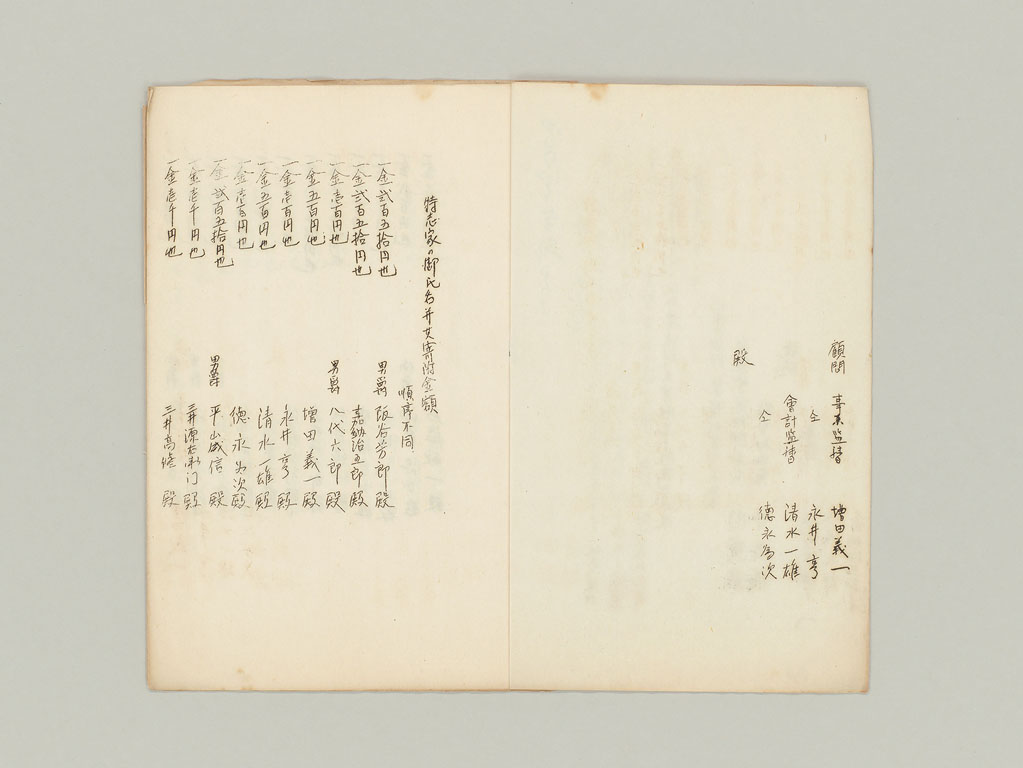 顧問 事業監督 増田義一
仝 永井亨
會計監督 清水一雄
仝 徳永為次
殿
特志家ノ御氏名并其寄附金額
順序不同
一金弐百五拾円也 男爵 阪谷芳郎殿
一金弐百五拾円也 嘉納治五郎殿
一金壱百円也 男爵 八代六郎殿
一金五百円也 増田義一殿
一金壱百円也 永井亨殿
一金五百円也 清水一雄殿
一金壱百円也 徳永為次殿
一金弐百五拾円也 男爵 平山成信殿
一金壱千円也 三井源右衛门殿
一金壱千円也 三井高脩殿